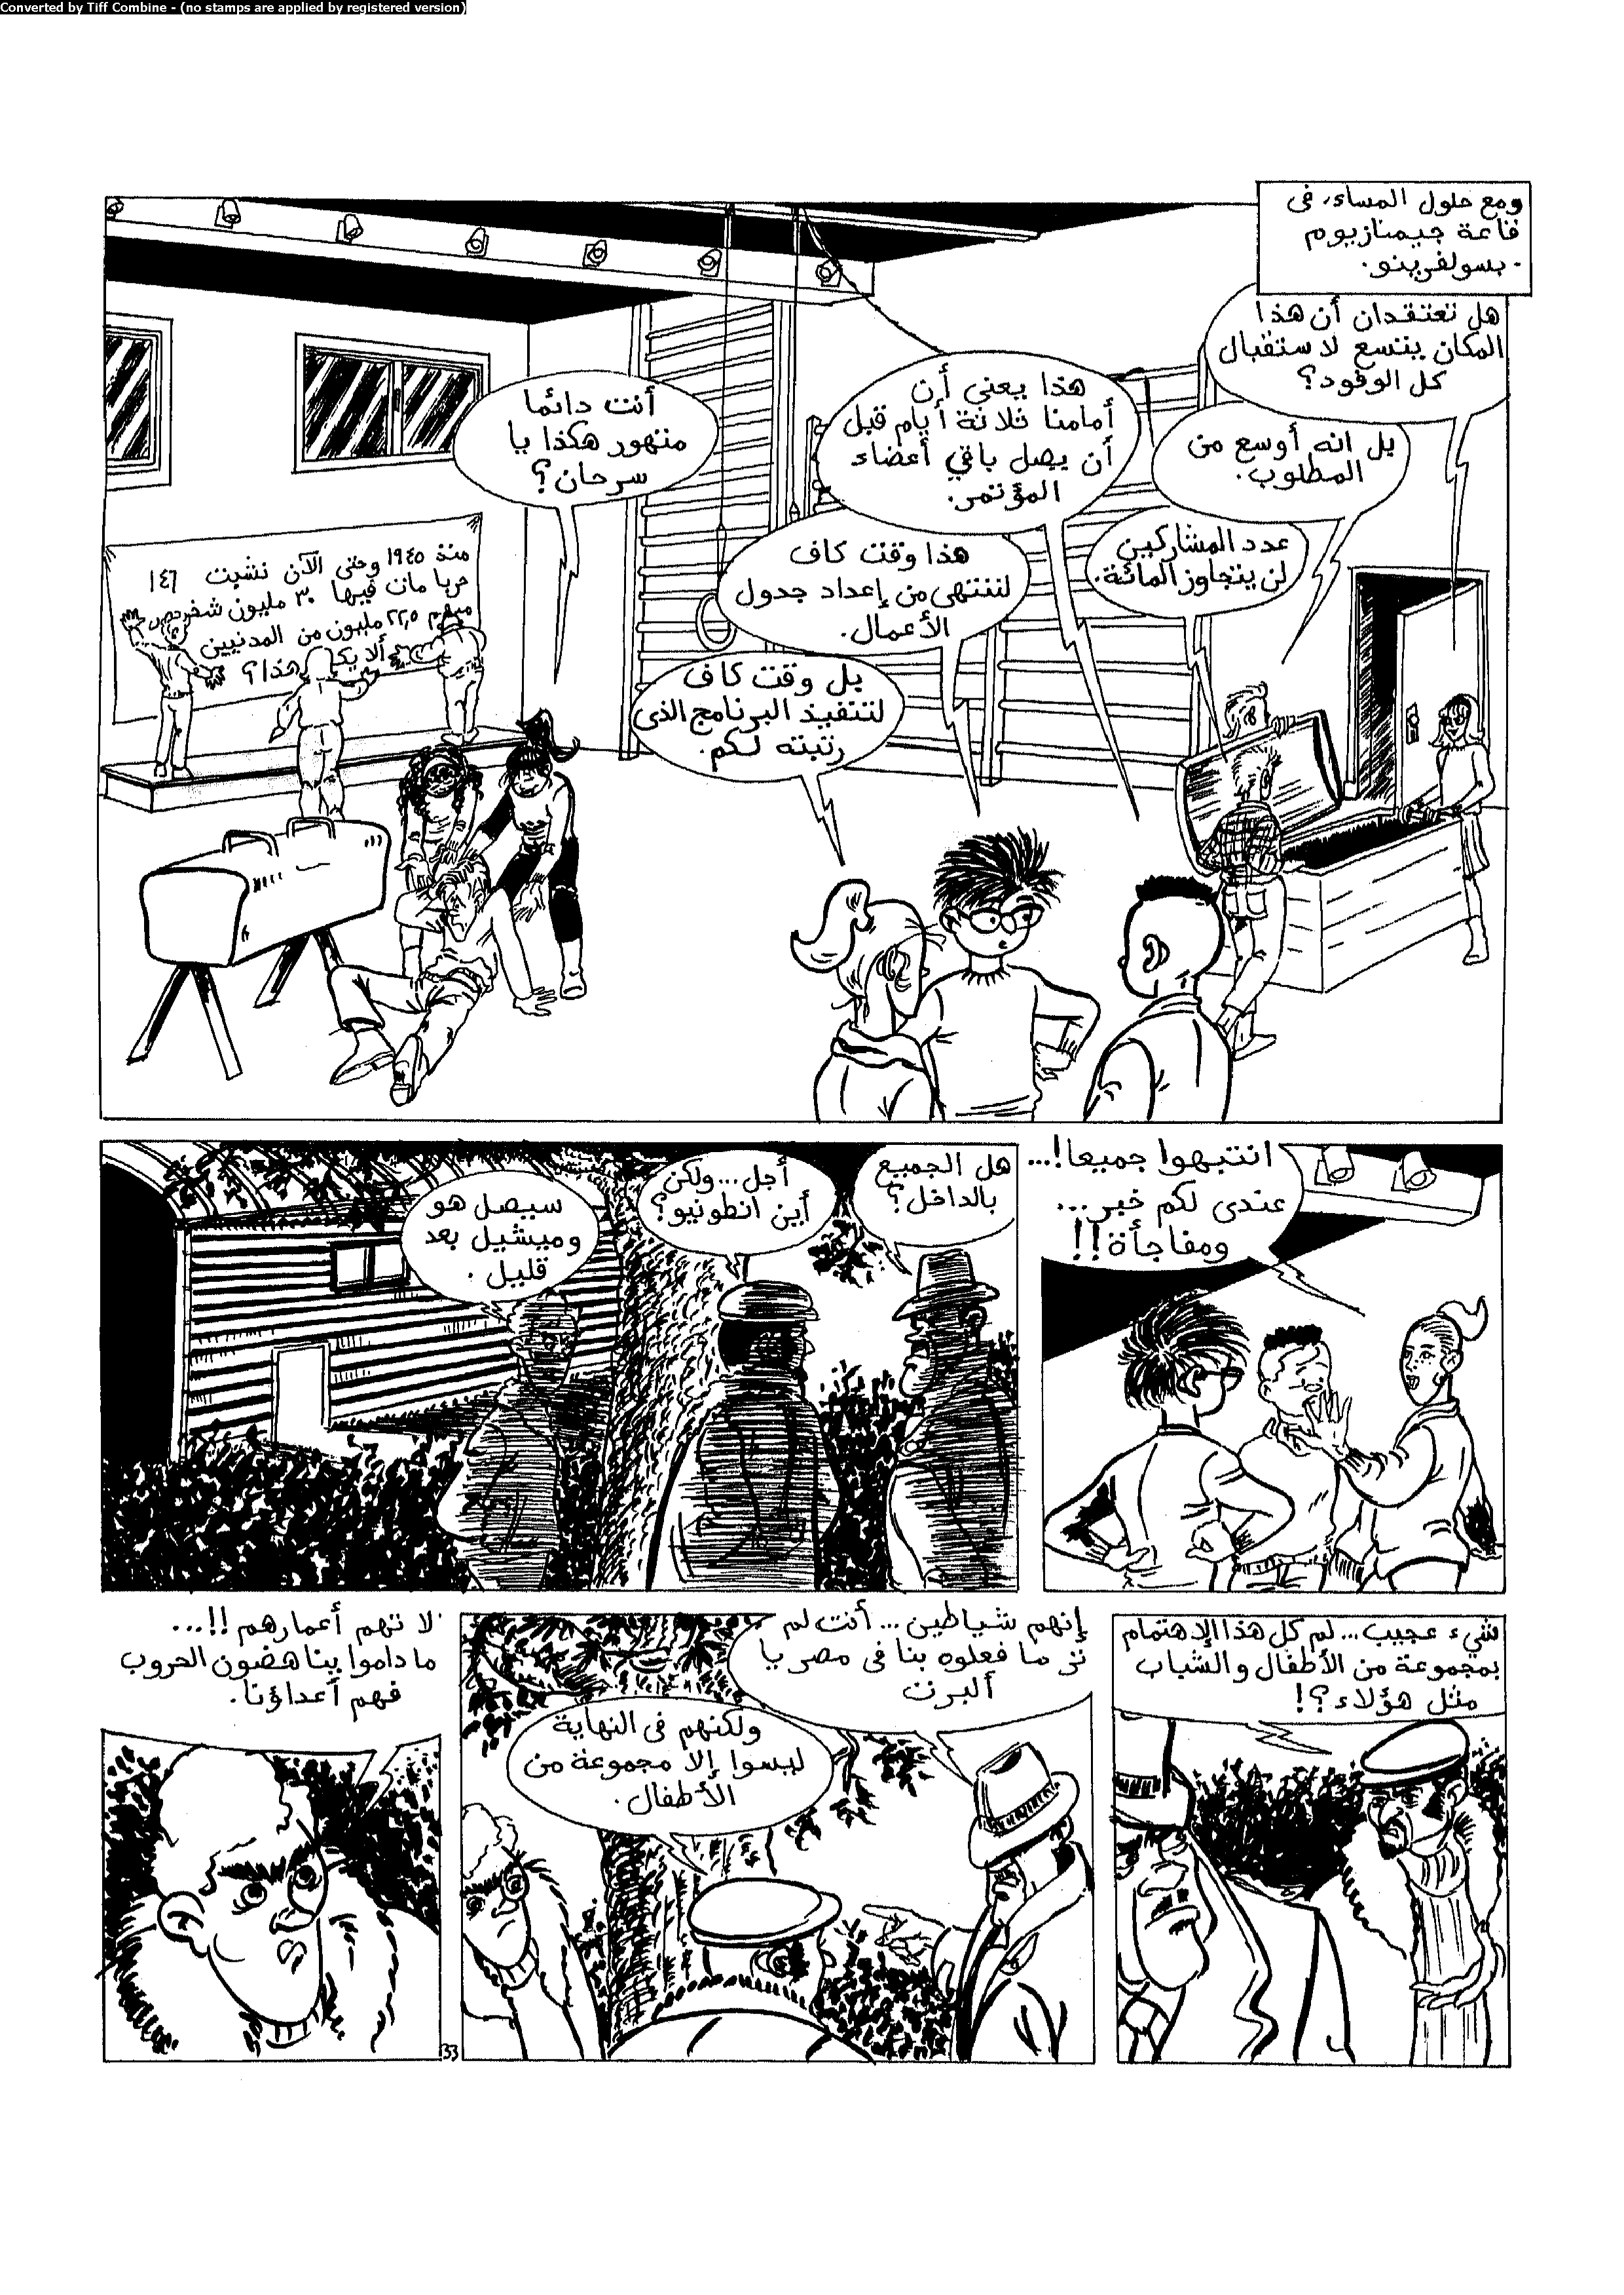 Converted by Tiff Combine - (no stamps are applied by registered version)
ومع حلول المساء، فى
قاعة جيمنازيوم
بسولفرينو.
هل تعتقدان أن هذا
المكان يتسع لاستقبال
كل الوفود؟
بل انه أوسع من
المطلوب.
عدد المشاركين
لن يتجاوز المائة.
هذا يعنى أن
أمامنا ثلاثة أيام قبل
أن يصل باقي أعضاء
المؤتمر.
هذا وقت كاف
لننتهى من إعداد جدول
الأعمال.
بل وقت كاف
لتنفيذ البرنامج الذى
رتبته لكم.
أنت دائما
متهور هكذا يا
سرحان؟
منذ ١٩٤٥ وحتى الآن نشبت ١٤٦
حربا مات فيها ٣٠ مليون شخص
منهم ٢٢,٥ مليون من المدنيين
ألا هذا؟
انتبهوا جميعا!...
عندى لكم خبر...
ومفاجأة!!
هل الجميع
بالداخل؟
أجل...ولكن
أين انطونيو؟
سيصل هو
وميشيل بعد
قليل.
شيء عجيب... لم كل هذا الإهتمام
بمجموعة من الأطفال والشباب
مثل هؤلاء؟!
إنهم شياطين... أنت لم
تر ما فعلوه بنا فى مصر يا
ألبرت
ولكنهم فى النهاية
ليسوا إلا مجموعة من
الأطفال.
لا تهم أعمارهم!!...
ماداموا يناهضون الحروب
فهم أعداؤنا.
33